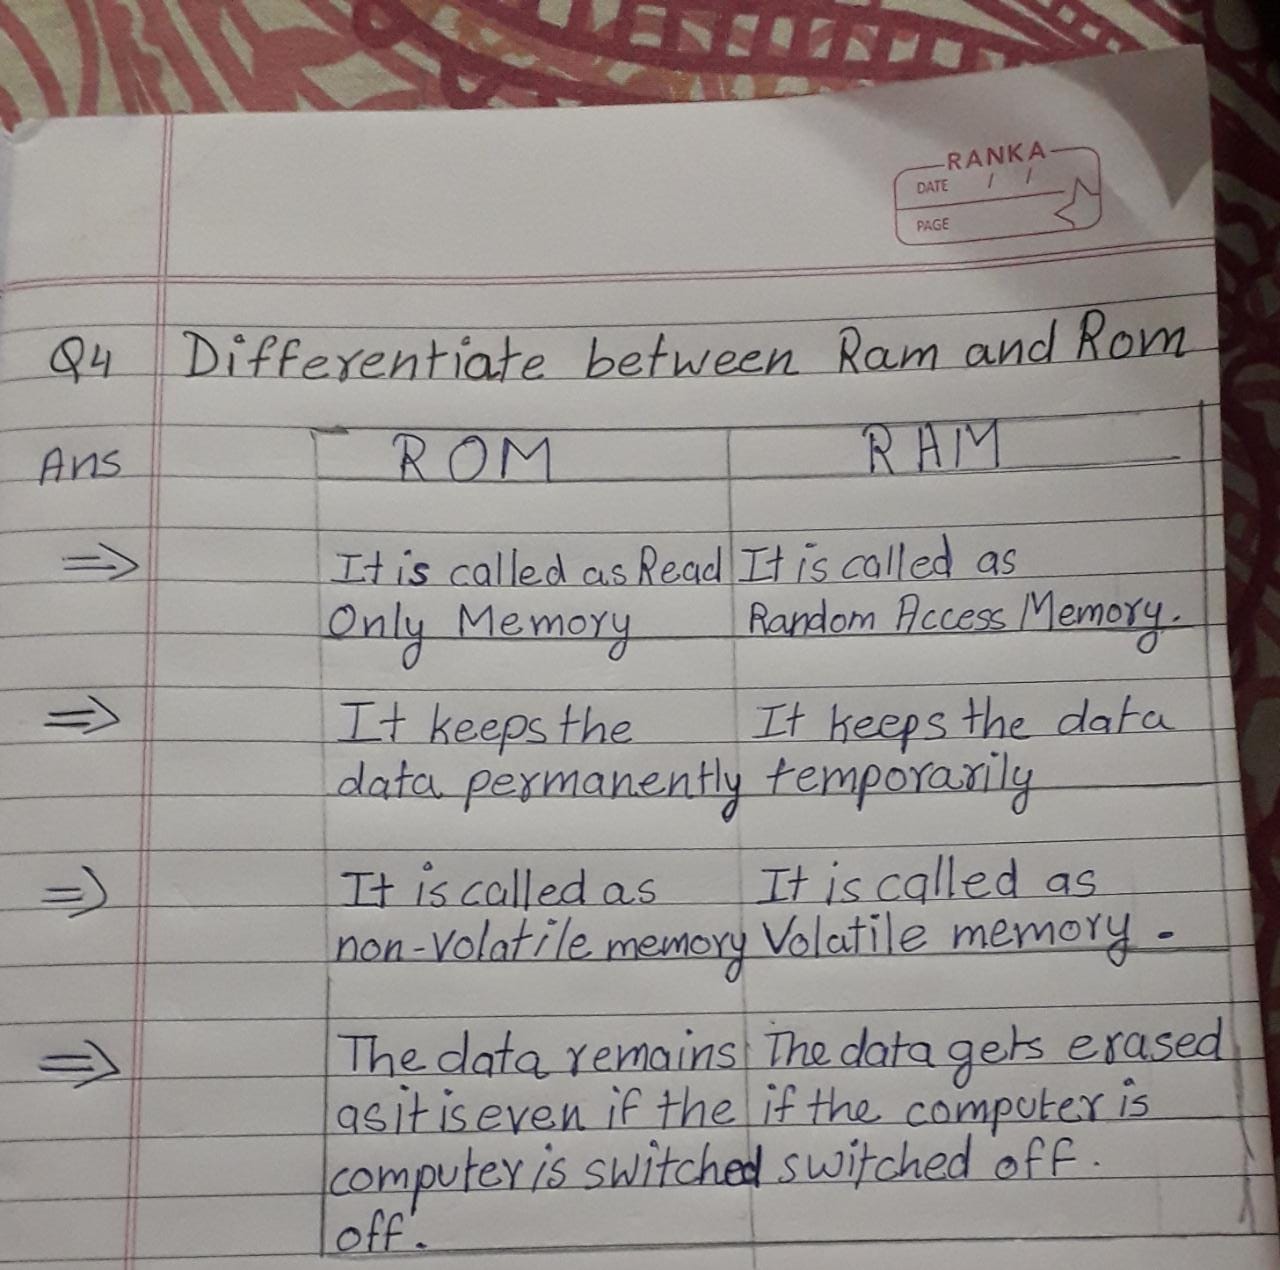 RANKA
DATE / /
PAGE
Q4 Differentiate between Ram and Rom
Ans ROM RAM
⇒ It is called as Read It is called as
Only Memory Random Access Memory.
⇒ It keeps the It keeps the data
data permanently temporarily
⇒ It is called as It is called as
non-volatile memory Volatile memory.
⇒ The data remains The data gets erased
as it is even if the if the computer is
computer is switched switched off.
off.